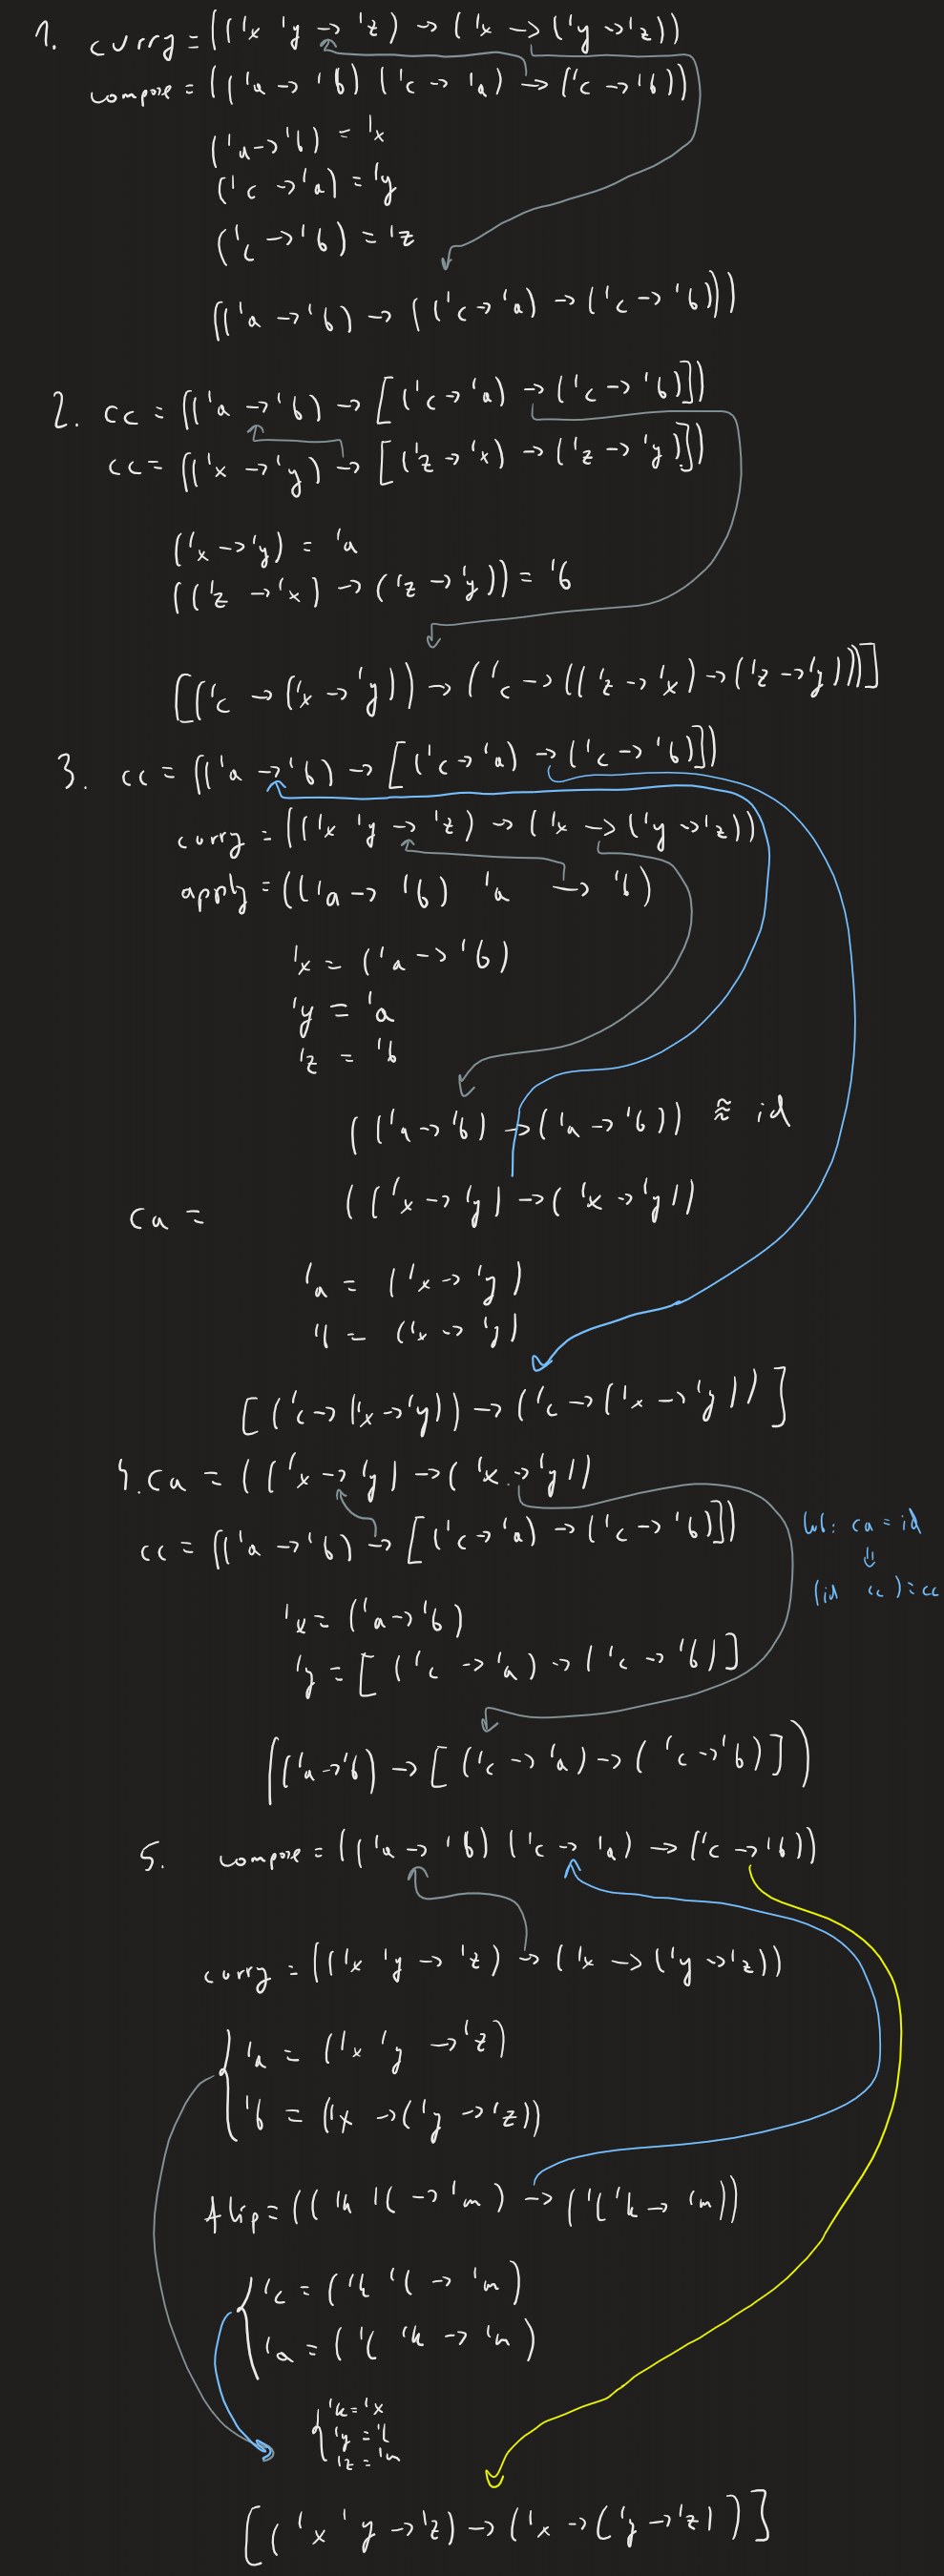 1. curry = (('x 'y -> 'z) -> ('x -> ('y -> 'z)))
compose = (('a -> 'b) ('c -> 'a) -> ('c -> 'b))
('a -> 'b) = 'x
('c -> 'a) = 'y
('c -> 'b) = 'z
(('a -> 'b) -> (('c -> 'a) -> ('c -> 'b)))
2. cc = (('a -> 'b) -> [('c -> 'a) -> ('c -> 'b)])
cc = (('x -> 'y) -> [('z -> 'x) -> ('z -> 'y)])
('x -> 'y) = 'a
(('z -> 'x) -> ('z -> 'y)) = 'b
[('c -> ('x -> 'y)) -> ('c -> (('z -> 'x) -> ('z -> 'y)))]
3. cc = (('a -> 'b) -> [('c -> 'a) -> ('c -> 'b)])
curry = (('x 'y -> 'z) -> ('x -> ('y -> 'z))
apply = (('a -> 'b) 'a -> 'b)
'x = ('a -> 'b)
'y = 'a
'z = 'b
(('a -> 'b) -> ('a -> 'b)) ≈ id
ca = (('x -> 'y) -> ('x -> 'y))
'a = ('x -> 'y)
'b = ('x -> 'y)
[('c -> ('x -> 'y)) -> ('c -> ('x -> 'y))]
4. ca = (('x -> 'y) -> ('x -> 'y))
cc = (('a -> 'b) -> [('c -> 'a) -> ('c -> 'b)])
ca = id
⇓
(id cc) = cc
'x = ('a -> 'b)
'y = [('c -> 'a) -> ('c -> 'b)]
(('a -> 'b) -> [('c -> 'a) -> ('c -> 'b)])
5. compose = (('a -> 'b) ('c -> 'a) -> ('c -> 'b))
curry = (('x 'y -> 'z) -> ('x -> ('y -> 'z))
'a = ('x 'y -> 'z)
'b = ('x -> ('y -> 'z))
flip = (('k 'l -> 'm) -> ('l 'k -> 'm))
'c = ('k 'l -> 'm)
'a = ('l 'k -> 'm)
'k = 'x
'y = 'l
'z = 'm
[('x 'y -> 'z) -> ('x -> ('y -> 'z))]